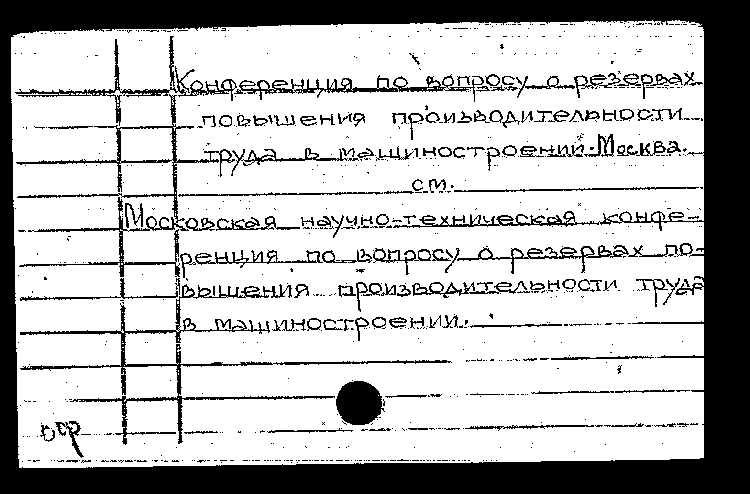 Конференция по вопросу о резервах
повышения производительности
труда в машиностроении. Москва.
см.
Московская научно-техническая конфе-
ренция по вопросу о резервах по-
вышения производительности труда
в машиностроении.